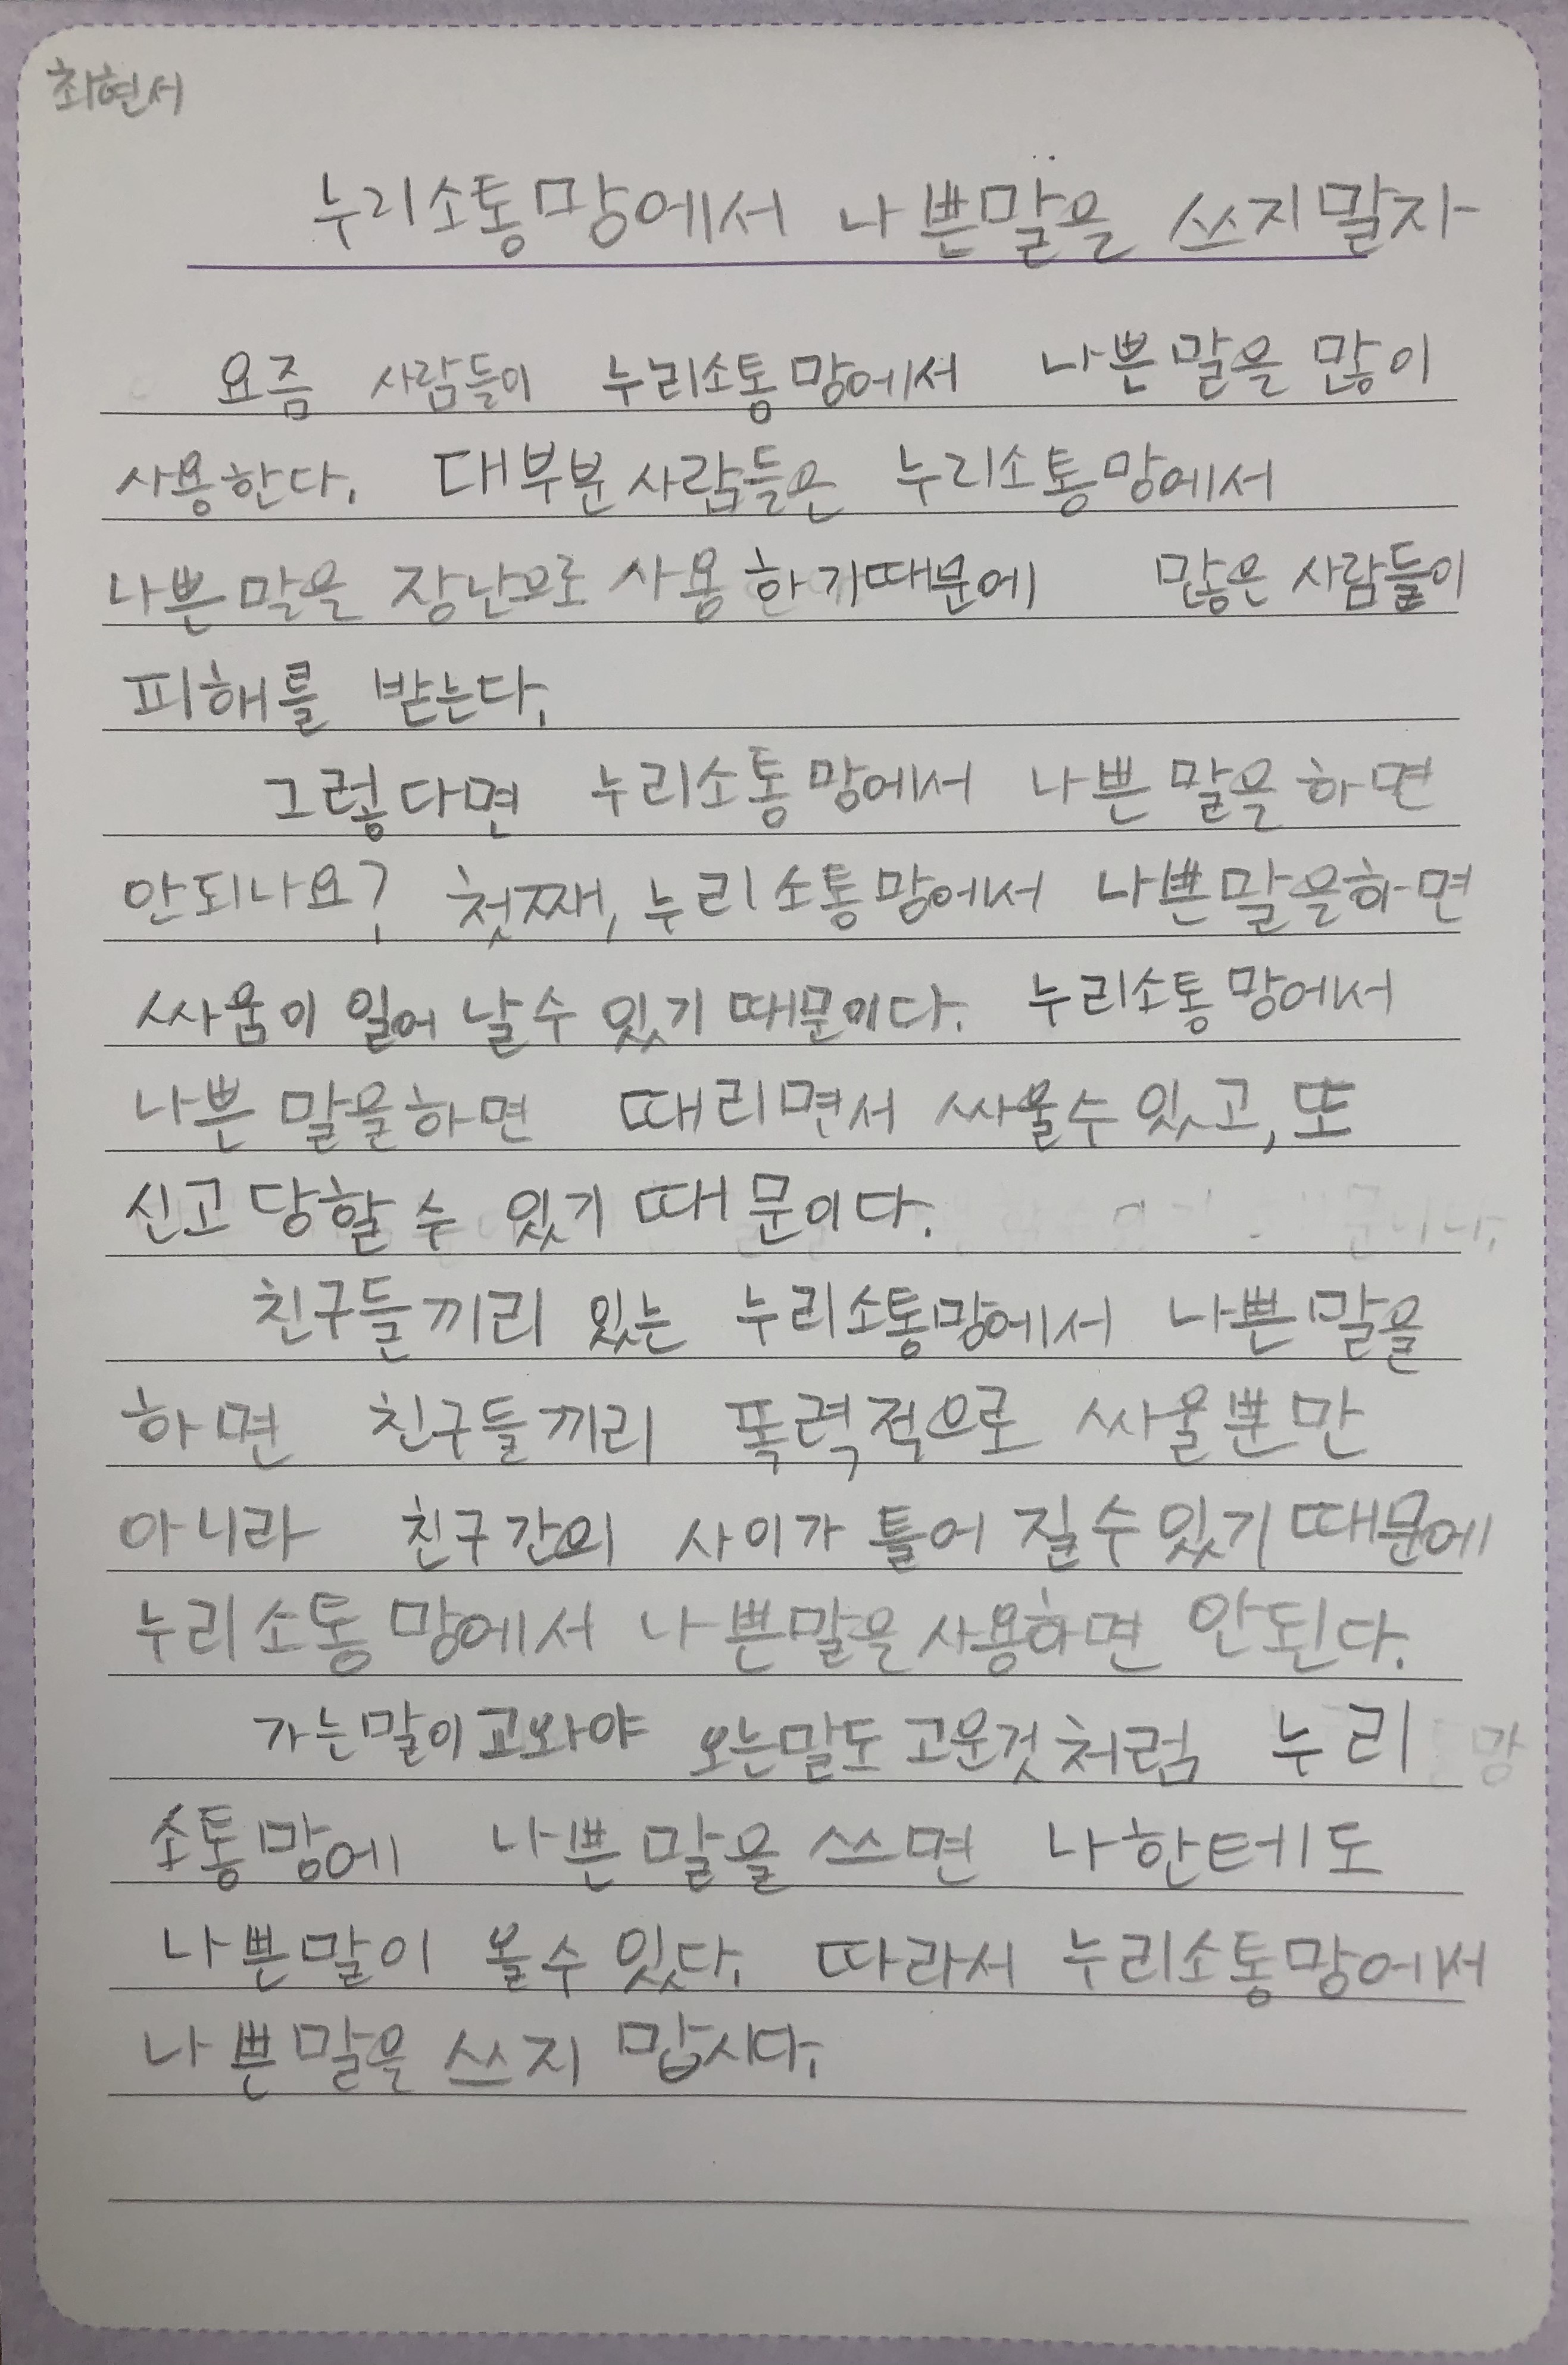 최현서
누리소통망에서 나쁜말을 쓰지말자
요즘 사람들이 누리소통망에서 나쁜말을 많이
사용한다. 대부분 사람들은 누리소통망에서
나쁜말을 장난으로 사용하기때문에 많은 사람들이
피해를 받는다.
그렇다면 누리소통망에서 나쁜말을하면
안되나요? 첫째, 누리소통망에서 나쁜말을하면
싸움이 일어 날수 있기 때문이다. 누리소통망에서
나쁜 말을하면 때리면서 싸울수 있고, 또
신고 당할 수 있기 때문이다.
친구들끼리 있는 누리소통망에서 나쁜말을
하면 친구들끼리 폭력적으로 싸울뿐만
아니라 친구간의 사이가 틀어 질수있기때문에
누리소통망에서 나쁜말을사용하면 안된다.
가는말이고와야 오는말도 고운것처럼 누리
소통망에 나쁜말을 쓰면 나한테도
나쁜말이 올수 있다. 따라서 누리소통망에서
나쁜말을 쓰지 맙시다.